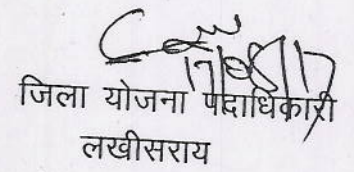 17/08/17
जिला योजना पदाधिकारी
लखीसराय